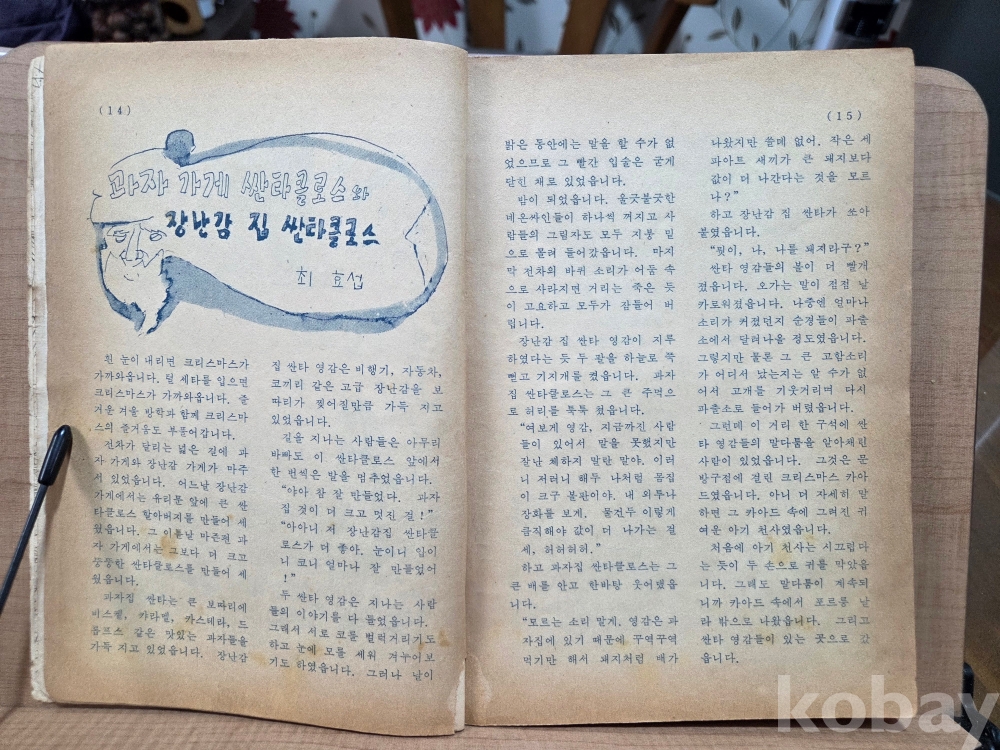 (14)
과자 가게 싼타클로스와
장난감 집 싼타클로스
최 효섭
흰 눈이 내리면 크리스마스가
가까와옵니다. 털 세타를 입으면
크리스마스가 가까와옵니다. 즐
거운 겨울 방학과 함께 크리스마
스의 즐거움도 부풀어갑니다.
전차가 달리는 넓은 길에 과
자 가게와 장난감 가게가 마주
서 있었읍니다. 어느날 장난감
가게에서는 유리문 앞에 큰 싼
타클로스 할아버지를 만들어 세
웠읍니다. 그 이튿날 마즌편 과
자 가게에서는 그보다 더 크고
뚱뚱한 싼타클로스를 만들어 세
웠읍니다.
과자집 싼타는 큰 보따리에
비스켙, 카라멜, 카스테라, 드
롭프스 같은 맛있는 과자들을
가득 지고 있었읍니다. 장난감
집 싼타 영감은 비행기, 자동차,
코끼리 같은 고급 장난감을 보
따리가 찢어질만큼 가득 지고
있었읍니다.
길을 지나는 사람들은 아무리
바빠도 이 싼타클로스 앞에서
한 번씩은 발을 멈추었읍니다.
“야아 참 잘 만들었다. 과자
집 것이 더 크고 멋진 걸!”
“아아니 저 장난감집 싼타클
로스가 더 좋아. 눈이니 입이
니 코니 얼마나 잘 만들었어
!”
두 싼타 영감은 지나는 사람
들의 이야기를 다 들었읍니다.
그래서 서로 코를 벌럭거리기도
하고 눈에 모를 세워 겨누어보
기도 하였읍니다. 그러나 날이
(15)
밝은 동안에는 말을 할 수가 없
었으므로 그 빨간 입술은 굳게
닫힌 채로 있었읍니다.
밤이 되었읍니다. 울긋불긋한
네온싸인들이 하나씩 꺼지고 사
람들의 그림자도 모두 지붕 밑
으로 몰려 들어갔읍니다. 마지
막 전차의 바퀴 소리가 어둠 속
으로 사라지면 거리는 죽은 듯
이 고요하고 모두가 잠들어 버
립니다.
장난감 집 싼타 영감이 지루
하였다는 듯 두 팔을 하늘로 쭉
뻗고 기지개를 켰읍니다. 과자
집 싼타클로스는 그 큰 주먹으
로 허리를 툭툭 쳤읍니다.
“여보게 영감, 지금까진 사람
들이 있어서 말을 못했지만
잘난 체하지 말란 말야. 이러
니 저러니 해두 나처럼 몸집
이 크구 볼판이야. 내 외투나
장화를 보게. 물건두 이렇게
큼직해야 값이 더 나가는 걸
세, 허허허허.”
하고 과자집 싼타클로스는 그
큰 배를 안고 한바탕 웃어댔읍
니다.
“모르는 소리 말게. 영감은 과
자집에 있기 때문에 꾸역꾸역
먹기만 해서 돼지처럼 배가
나왔지만 쓸데 없어. 작은 세
파아트 새끼가 큰 돼지보다
값이 더 나간다는 것을 모르
나?”
하고 장난감 집 싼타가 쏘아
붙였읍니다.
“뭣이, 나, 나를 돼지라구?”
싼타 영감들의 볼이 더 빨개
졌읍니다. 오가는 말이 점점 날
카로워졌읍니다. 나중엔 얼마나
소리가 커졌던지 순경들이 파출
소에서 달려나올 정도였읍니다.
그렇지만 물론 그 큰 고함소리
가 어디서 났는지는 알 수가 없
어서 고개를 기웃거리며 다시
파출소로 들어가 버렸읍니다.
그런데 이 거리 한 구석에 싼
타 영감들의 말다툼을 알아채린
사람이 있었읍니다. 그것은 문
방구점에 걸린 크리스마스 카아
드였읍니다. 아니 더 자세히 말
하면 그 카아드 속에 그려진 귀
여운 아기 천사였읍니다.
처음에 아기 천사는 시끄럽다
는 듯이 두 손으로 귀를 막았읍
니다. 그래도 말다툼이 계속되
니까 카아드 속에서 포르릉 날
라 밖으로 나왔읍니다. 그리고
싼타 영감들이 있는 곳으로 갔
읍니다.
kobay